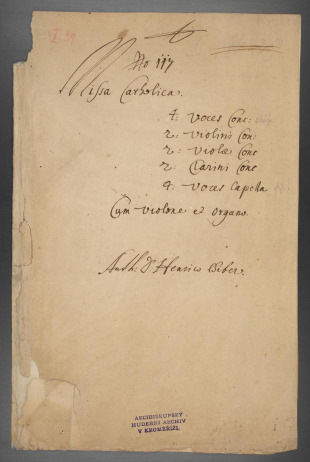 I. 39
No 117
Missa Catholica.
4: voces Conc:
2: violini Con:
2: violæ Conc
2: Clarini Conc
4: voces Capella
Cum violone et organo.
Auth: D Henrico Biber.
ARCIBISKUPSKÝ
HUDEBNÍ ARCHIV
V KROMĚŘÍŽI.